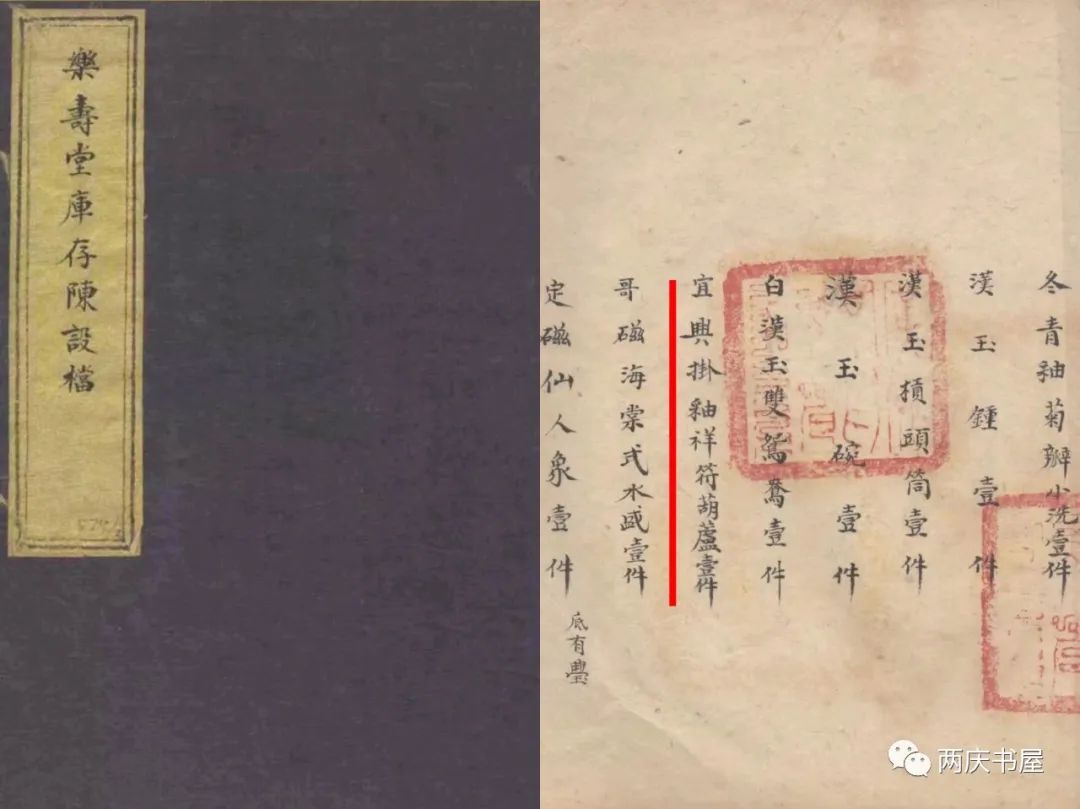 樂壽堂庫存陳設檔
冬青釉菊瓣小洗壹件
漢玉鍾壹件
漢玉摃頭筒壹件
漢玉碗壹件
白漢玉雙鴛鴦壹件
宜興掛釉祥符葫蘆壹件
哥磁海棠式水盛壹件
定磁仙人象壹件
底有璺
两庆书屋